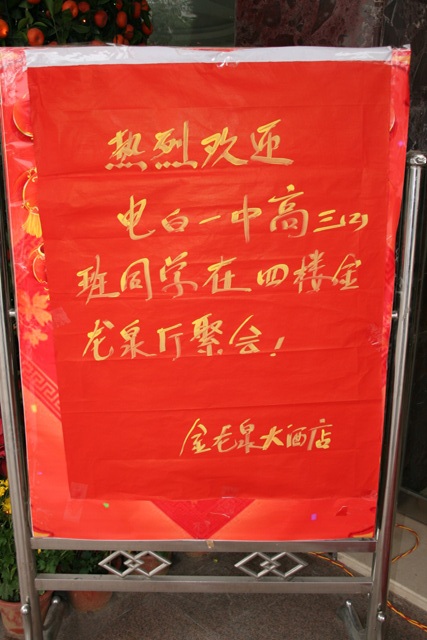 热烈欢迎
电白一中高三(2)
班同学在四楼金
龙泉厅聚会!
金龙泉大酒店